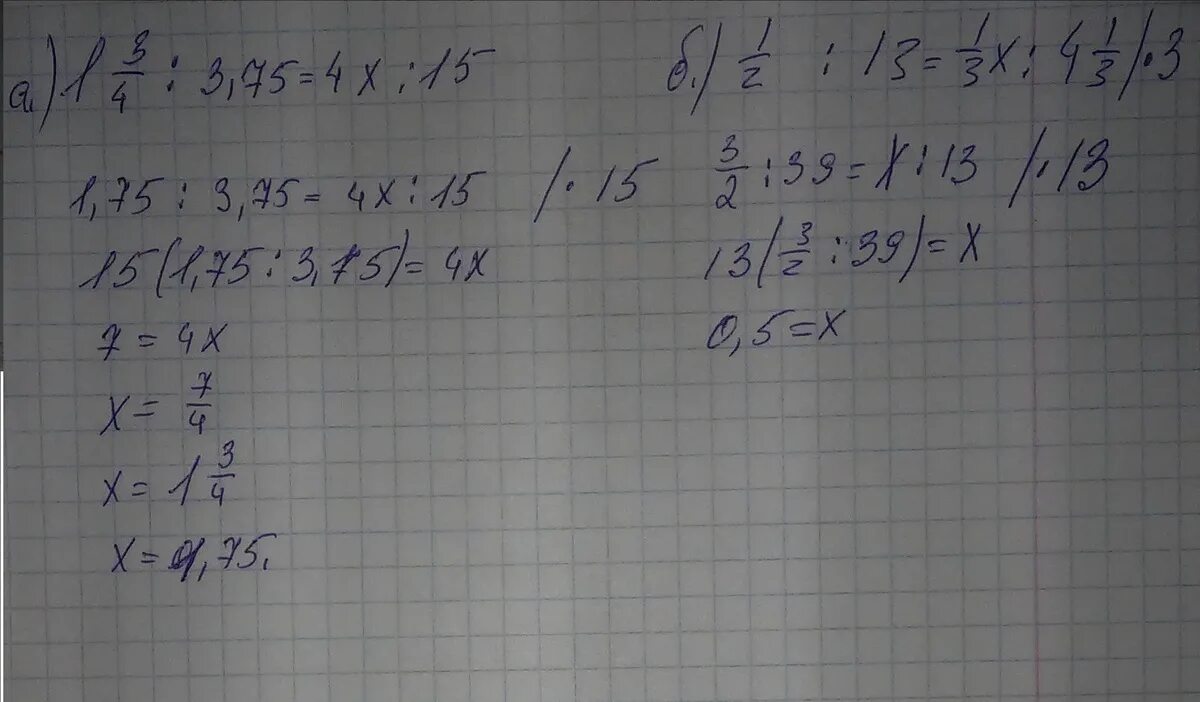 а.) 1 3/4 : 3,75 = 4x : 15
1,75 : 3,75 = 4x : 15 /· 15
15(1,75 : 3,75) = 4x
7 = 4x
x = 7/4
x = 1 3/4
x = 1,75.
б.) 1/2 : 13 = 1/3 x : 4 1/3 /· 3
3/2 : 39 = x : 13 /· 13
13(3/2 : 39) = x
0,5 = x